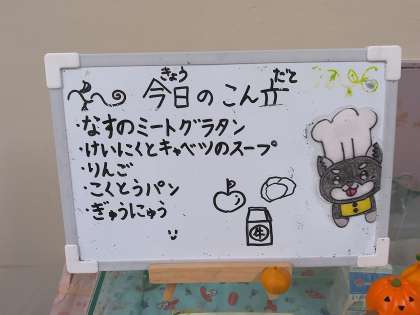 今日のこん立
きょう だて
・なすのミートグラタン
・けいにくとキャベツのスープ
・りんご
・こくとうパン
・ぎゅうにゅう
牛